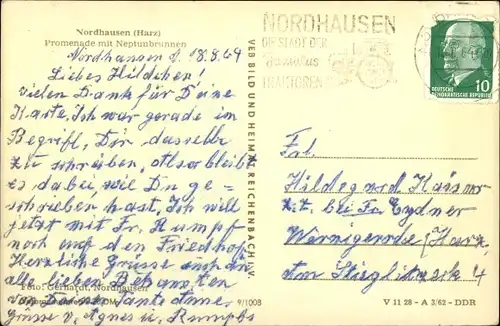 Nordhausen (Harz)
Promenade mit Neptunbrunnen
Nordhausen d. 18.8.64
Liebes Hildchen!
Vielen Dank für Deine
Karte. Ich war gerade im
Begriff, Dir dasselbe
zu schreiben. Also bleibt
es dabei, wie Du ge-
schrieben hast. Ich will
jetzt mit Fr. Rumpf
noch auf den Friedhof
Herzliche Grüsse auch an
alle lieben Bekannten
von Deiner Tante Anne
Grüsse v. Agnes u. Rumpfs
Foto: Gerhardt, Nordhausen
9/1008
VEB BILD UND HEIMAT REICHENBACH i. V.
NORDHAUSEN
DIE STADT DER
TRAKTOREN
10
DEUTSCHE
DEMOKRATISCHE REPUBLIK
Frl.
Hildegard Kaiser
z.Z. bei Fr. Eydner
Wernigerode/Harz
Am Stieglitzeck 4
V 11 28 - A 3/62 - DDR